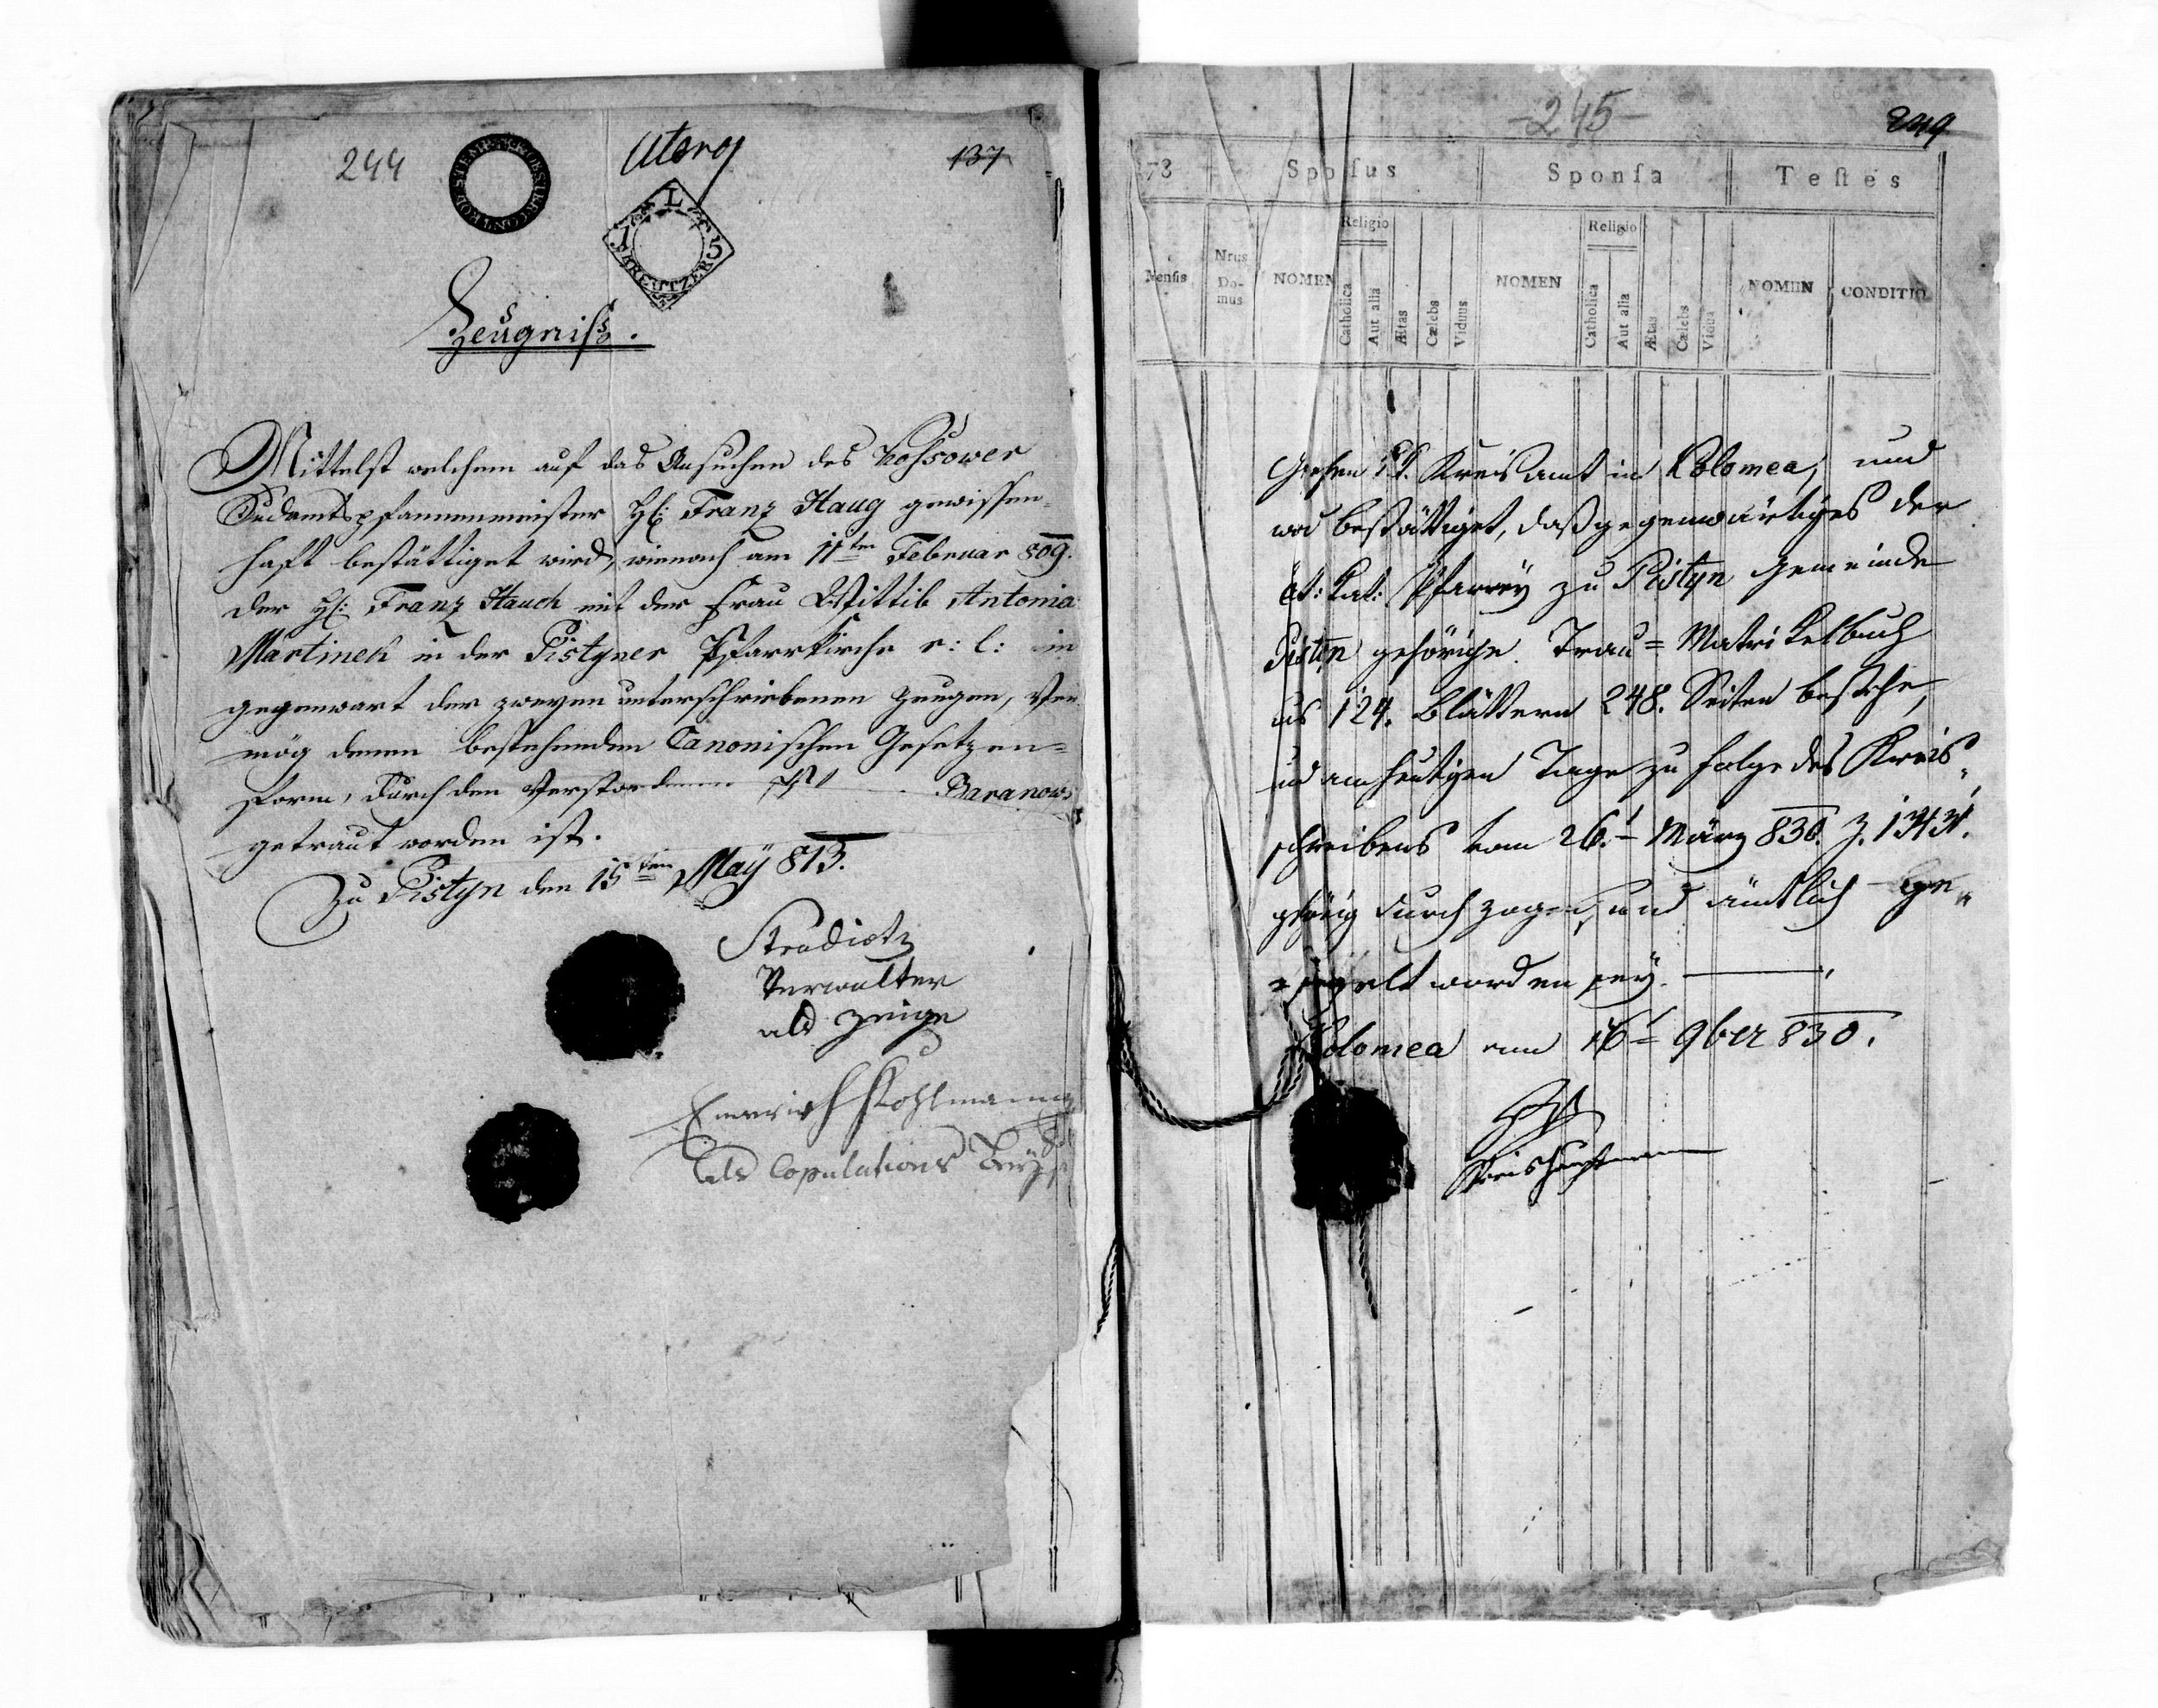 244
Utorg
137
L
15
KREUTZER
Zeugniß.
Mittelst welchem auf das Ansuchen des Kossower
Sudamtspfannenmeister H: Franz Haug gewissen-
haft bestättiget wird, wienach am 11ten Februar 809.
der H: Franz Hauch mit der Frau Wittib Antonia
Martinek in der Pistyner Pfarrkirche r: l: in
gegenwart der zweyen unterschriebenen Zeugen, Ver
mög denen bestehenden Canonischen Gesetzen=
form, durch den Verstorbenen Baranow
getraut worden ist.
Zu Pistyn den 15ten May 813.
Verwalter
als Zeuge
Kohlmann
als Copulations
-245-
249
73
Sposus
Sponsa
Testes
Mensis
Nrus Domus
NOMEN
Religio
Catholica
Aut alia
Ætas
Cælebs
Viduus
NOMEN
Religio
Catholica
Aut alia
Ætas
Cælebs
Vidua
NOMEN
CONDITIO
Kreisamt in Kolomea, und
wird bestättiget, daß gegenwärtiges der
Kat: Pfarrey zu Pistyn Gemeinde
Pistyn gehörige Trau= Matrikelbuch
us 124. Blättern 248. Seiten bestehe,
und am heutigen Tage zu folge des Kreis„
schreibens vom 26.t März 830. Z. 1343.
durchzogen, und ämtlich ge„
siegelt worden sey.
Kolomea am 16t 9ber 830.
Kreishauptmann